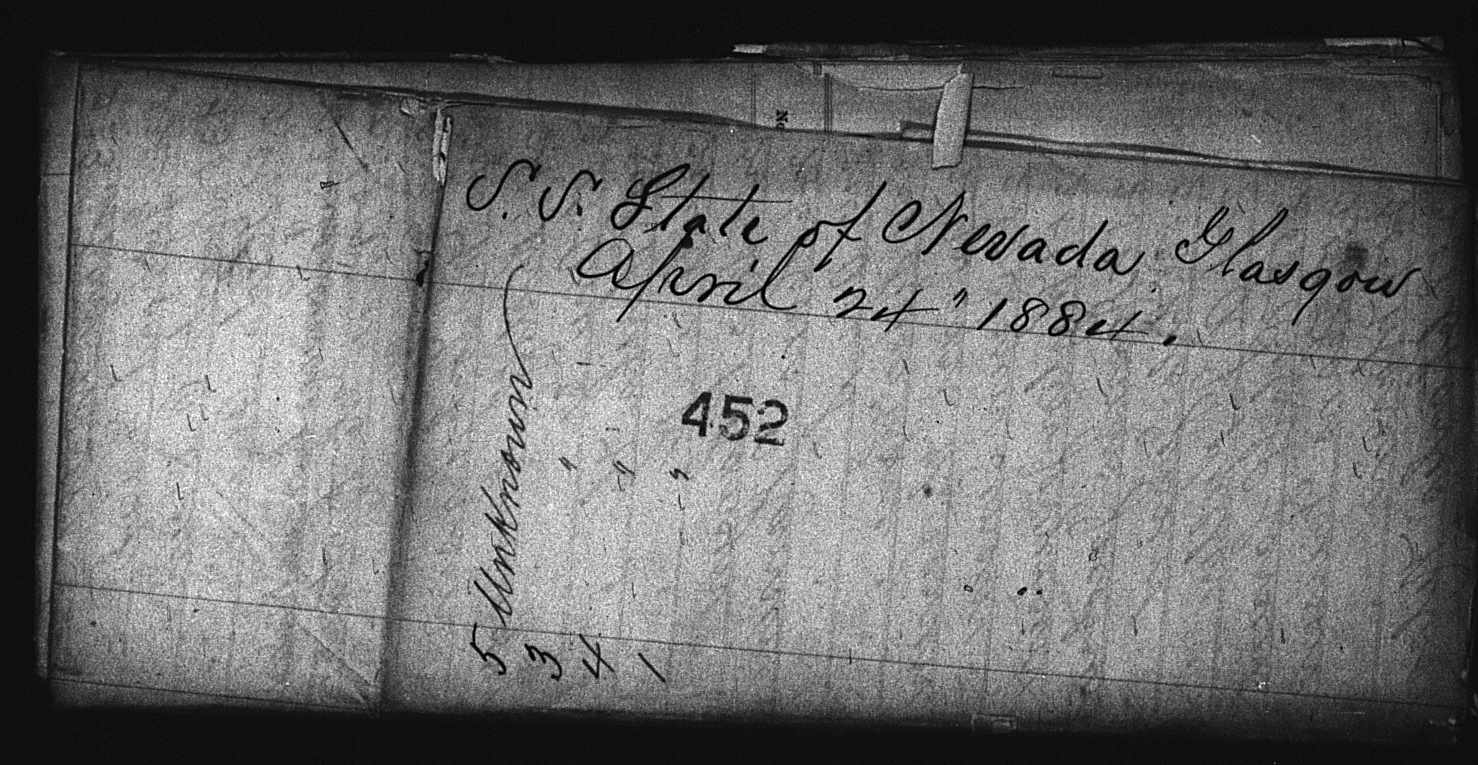 No
S. S. State of Nevada Glasgow
April 24" 1884.
452
5 Unknown
3 "
4 "
1 "